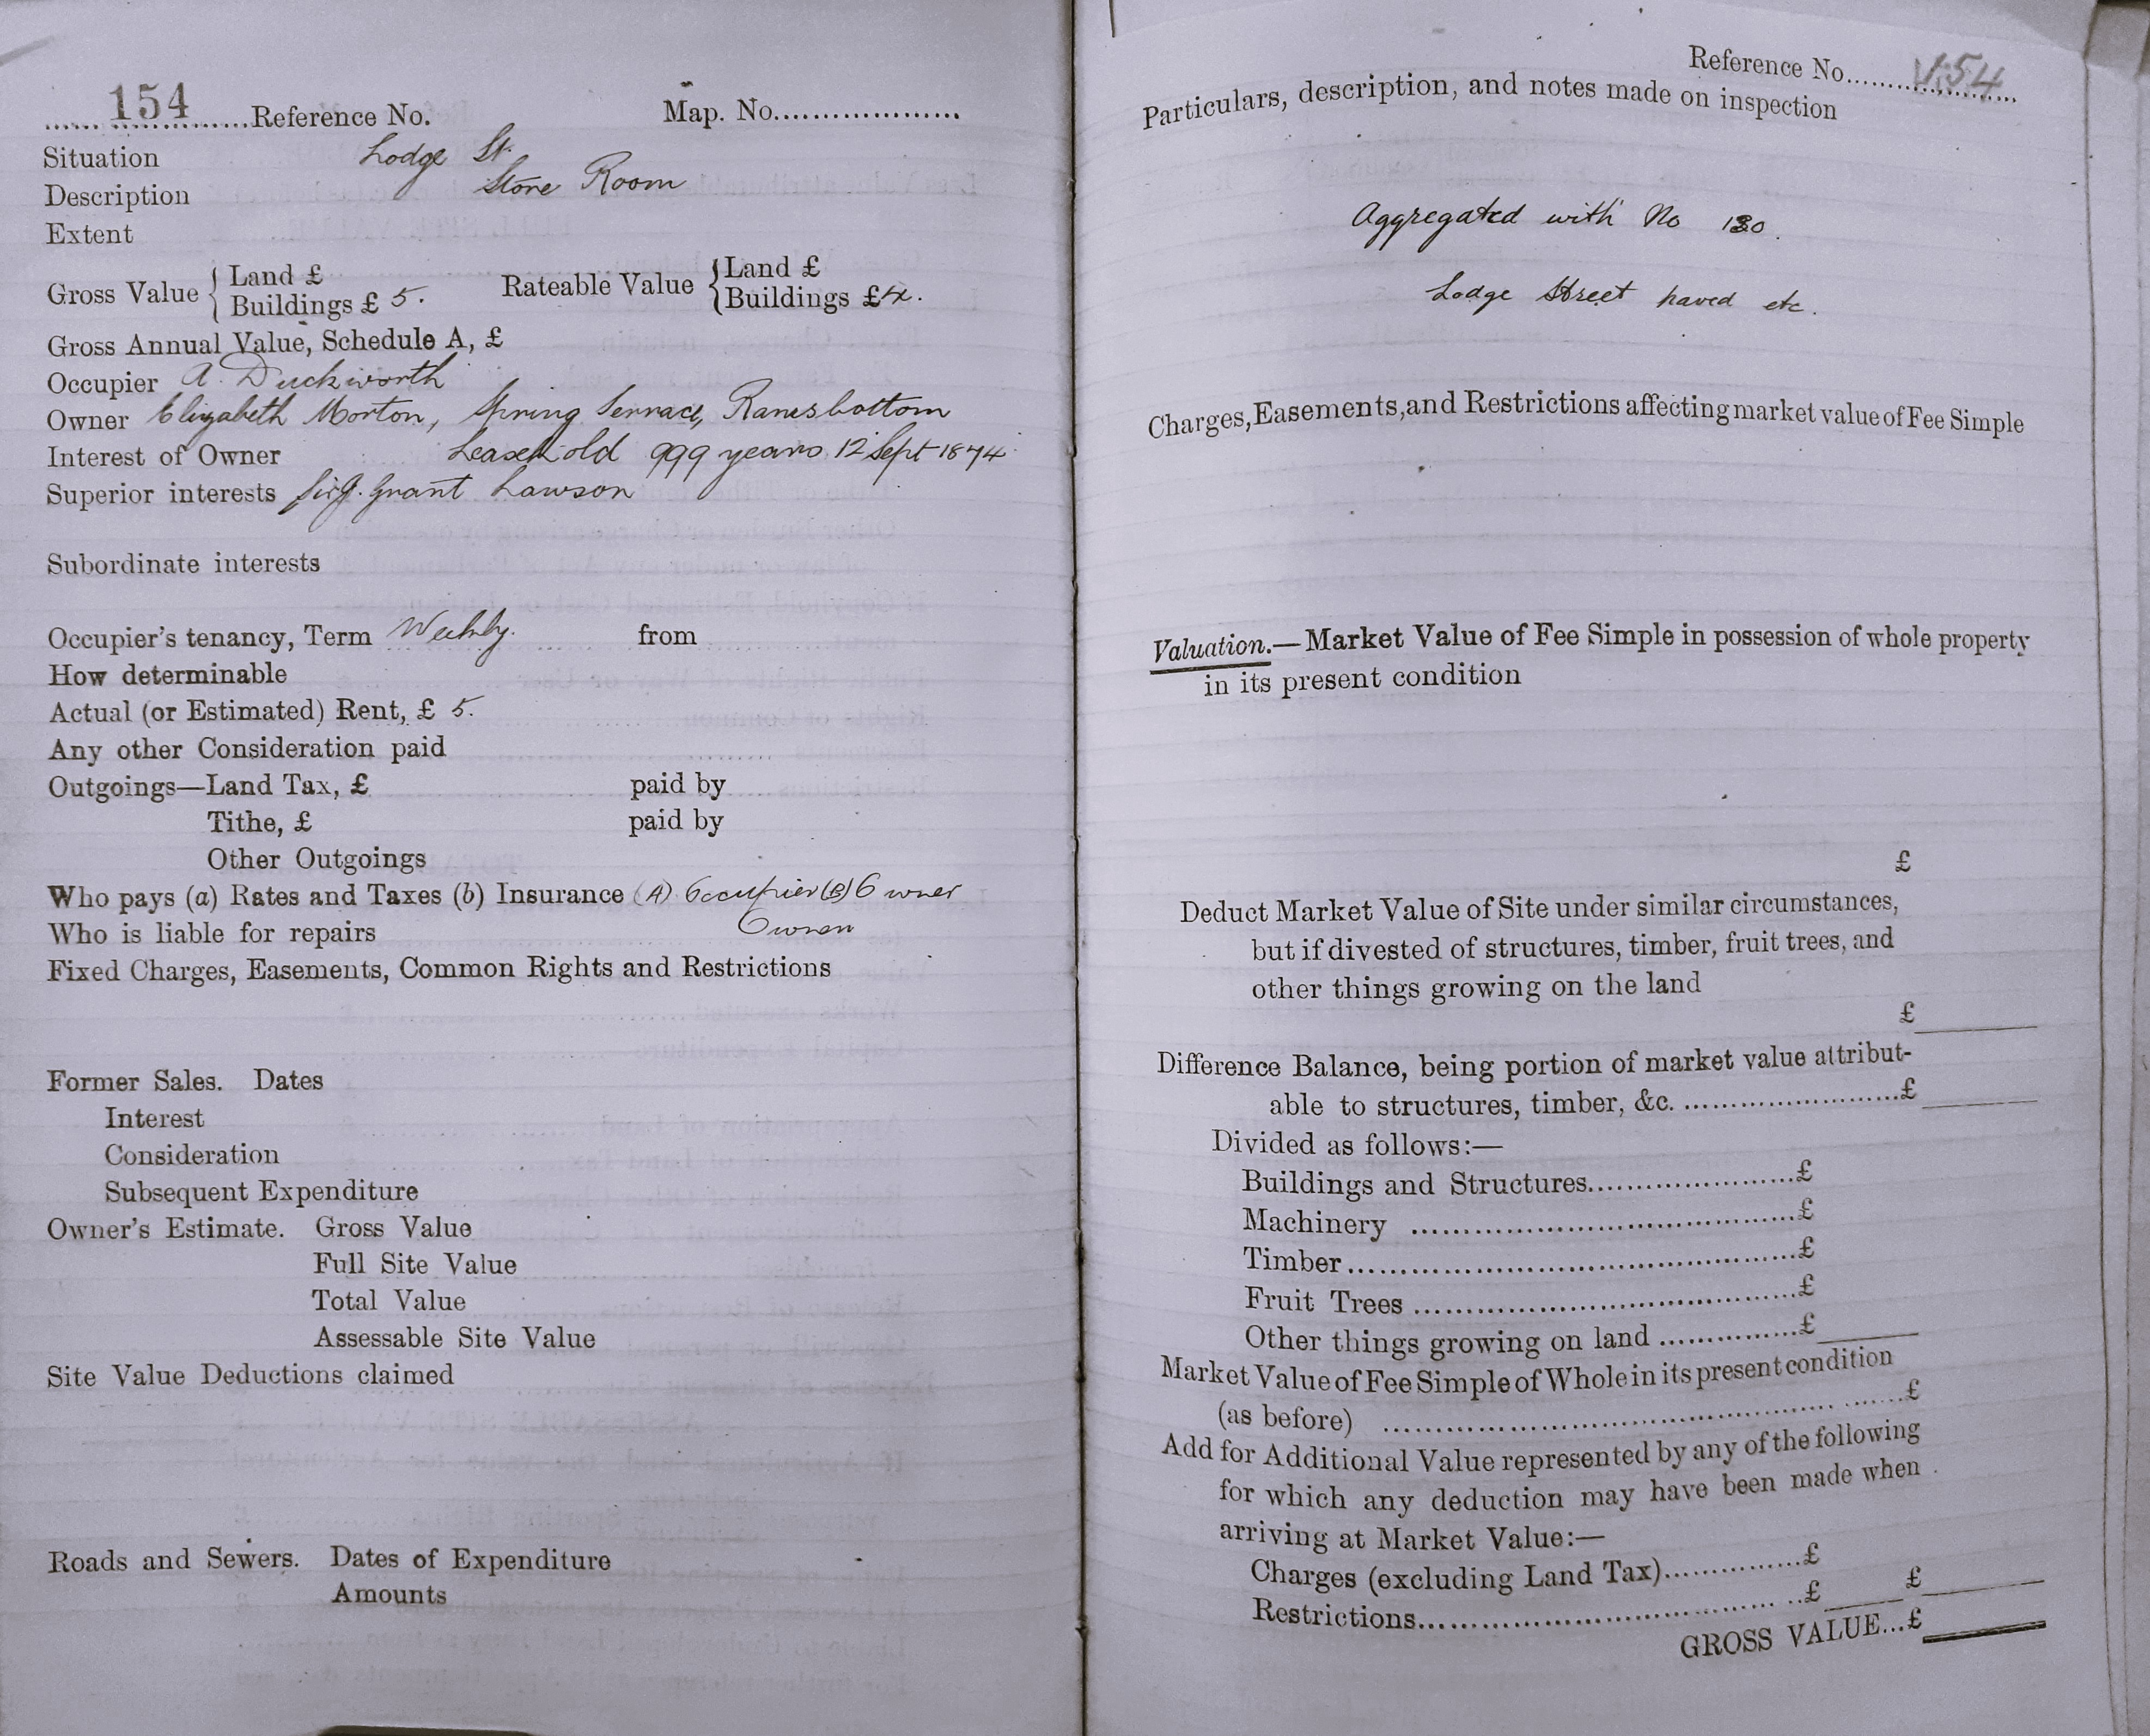 154 Reference No. Map. No.
Situation Lodge St.
Description Store Room
Extent
Gross Value { Land £ Rateable Value { Land £
Buildings £ 5. Buildings £4.
Gross Annual Value, Schedule A, £
Occupier A. Duckworth
Owner Elizabeth Morton, Spring Terrace, Ramsbottom
Interest of Owner Leasehold 999 years 12 Sept 1874
Superior interests Sir J. Grant Lawson
Subordinate interests
Occupier's tenancy, Term Weekly. from
How determinable
Actual (or Estimated) Rent, £ 5.
Any other Consideration paid
Outgoings—Land Tax, £ paid by
Tithe, £ paid by
Other Outgoings
Who pays (a) Rates and Taxes (b) Insurance (A) Occupier (B) Owner
Who is liable for repairs Owner
Fixed Charges, Easements, Common Rights and Restrictions
Former Sales. Dates
Interest
Consideration
Subsequent Expenditure
Owner's Estimate. Gross Value
Full Site Value
Total Value
Assessable Site Value
Site Value Deductions claimed
Roads and Sewers. Dates of Expenditure
Amounts
Reference No. 154
Particulars, description, and notes made on inspection
Aggregated with No 130.
Lodge Street paved etc.
Charges, Easements, and Restrictions affecting market value of Fee Simple
Valuation.—Market Value of Fee Simple in possession of whole property
in its present condition
£
Deduct Market Value of Site under similar circumstances,
but if divested of structures, timber, fruit trees, and
other things growing on the land
£
Difference Balance, being portion of market value attribut-
able to structures, timber, &c. £
Divided as follows:—
Buildings and Structures £
Machinery £
Timber £
Fruit Trees £
Other things growing on land £
Market Value of Fee Simple of Whole in its present condition
(as before) £
Add for Additional Value represented by any of the following
for which any deduction may have been made when
arriving at Market Value:—
Charges (excluding Land Tax) £
Restrictions £ £
GROSS VALUE...£